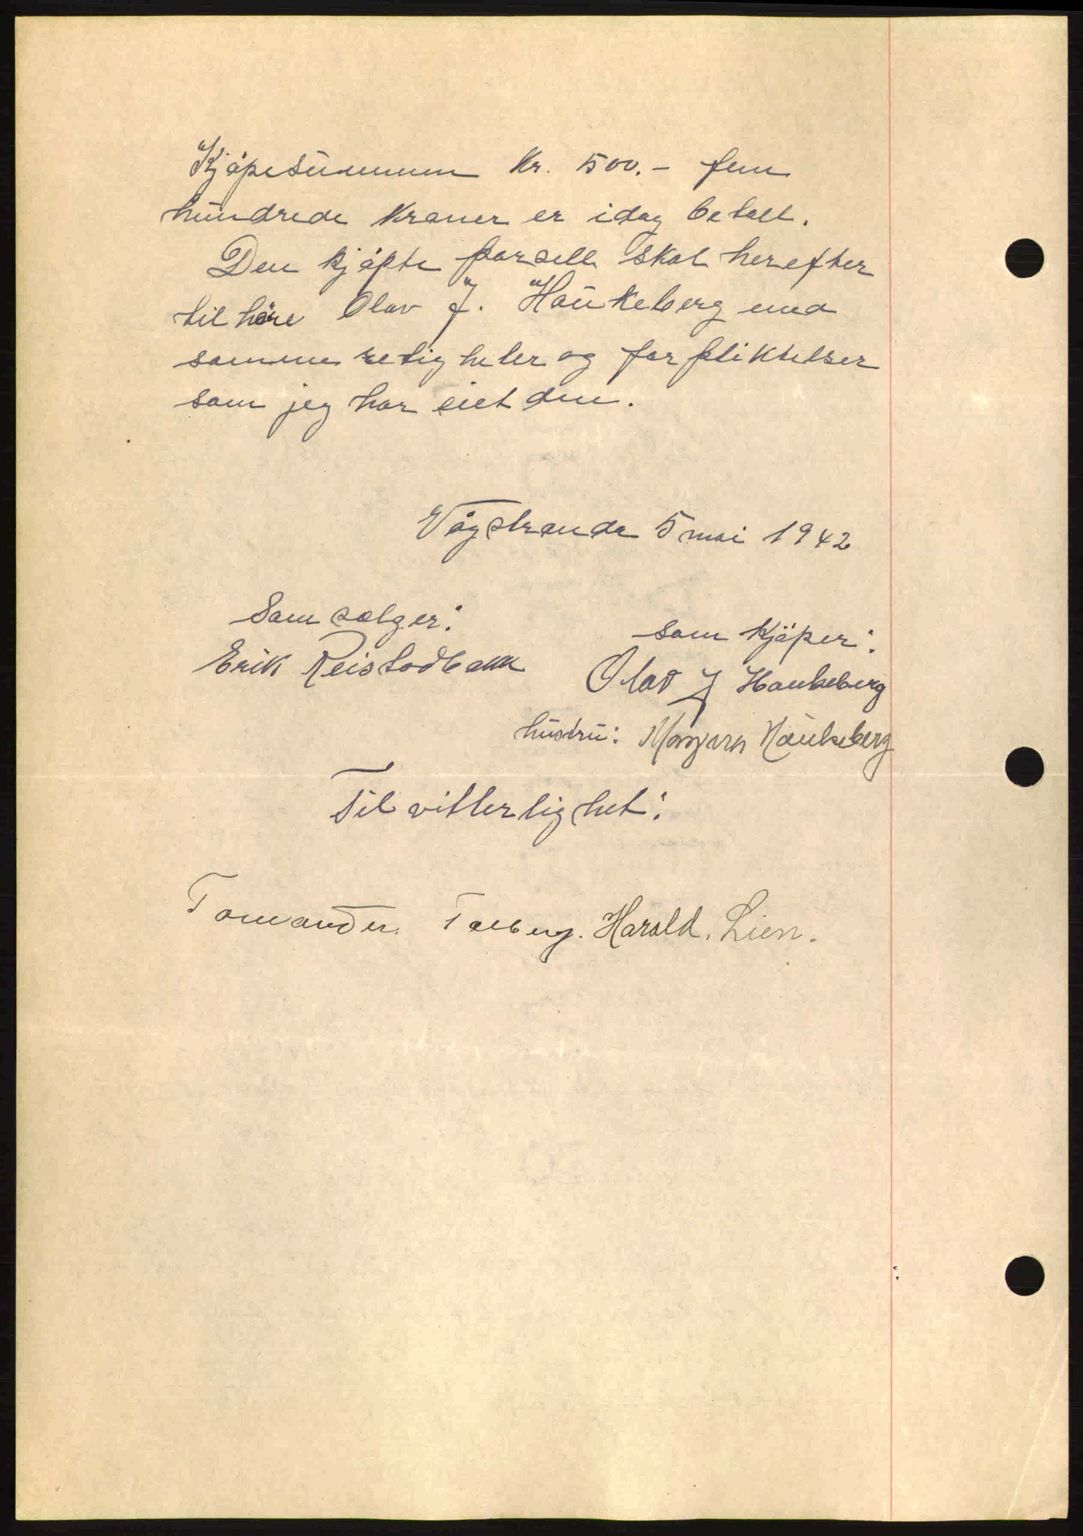 Kjöpesummen Kr. 500.- fem
hundrede kroner er idag betalt.
Den kjöpte parsell skal herefter
tilhöre Olav J. Haukeberg med
samme retigheter og forpliktelser
som jeg har eiet den.
Vågstranda 5 mai 1942
Som sælger:
som kjöper:
Erik Reistadbakk
Olav J Haukeberg
hustru: Haukeberg
Til vitterlighet:
Harald. Lien.